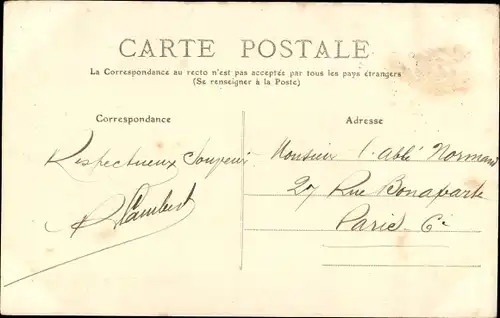 CARTE POSTALE
La Correspondance au recto n'est pas acceptée par tous les pays étrangers
(Se renseigner à la Poste)
Correspondance
Adresse
Respectueux Souvenir
Lambert
Monsieur l'abbé Normand
27 Rue Bonaparte
Paris 6e